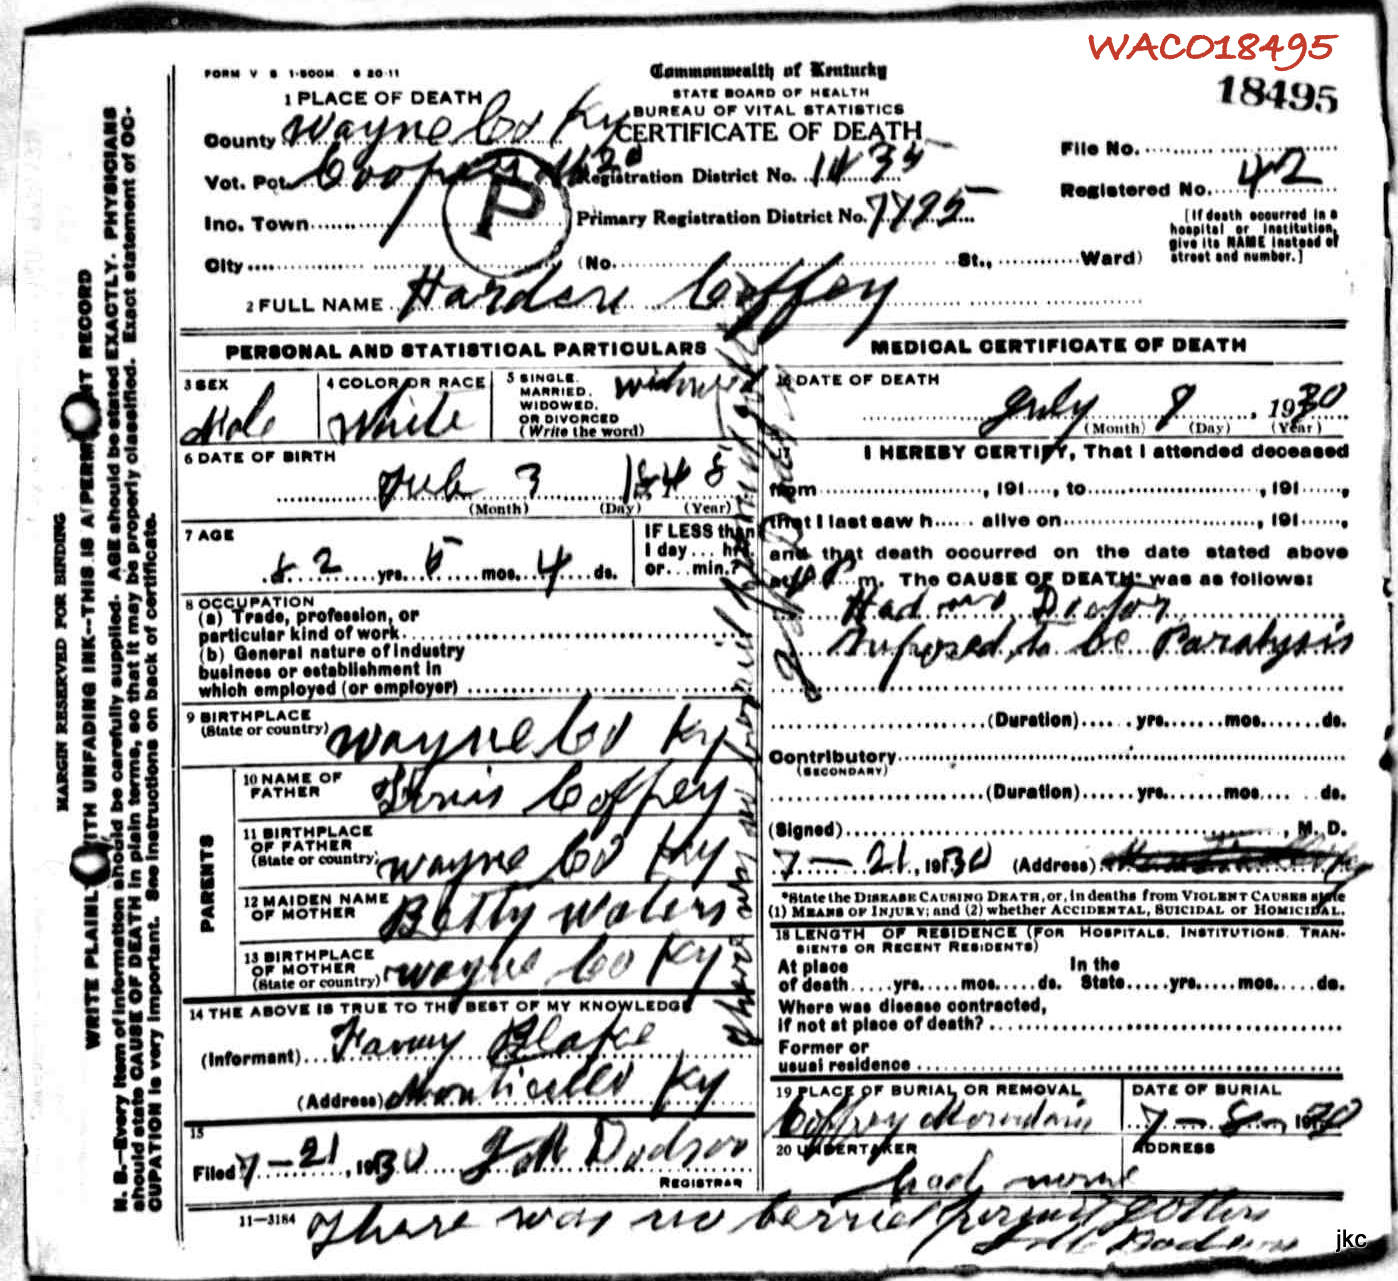 WACO18495
18495
FORM V S 1-500M 6 20-11
Commonwealth of Kentucky
STATE BOARD OF HEALTH
BUREAU OF VITAL STATISTICS
CERTIFICATE OF DEATH
1 PLACE OF DEATH
County Wayne Co Ky
Vot. Pct. Coopers
Inc. Town
City
P
Registration District No. 1135
Primary Registration District No. 7795
(No. St., Ward)
File No.
Registered No. 42
[If death occurred in a
hospital or institution,
give its NAME instead of
street and number.]
2 FULL NAME Harden Coffey
PERSONAL AND STATISTICAL PARTICULARS
3 SEX
Male
4 COLOR OR RACE
White
5 SINGLE.
MARRIED.
WIDOWED.
OR DIVORCED
(Write the word)
widowed
6 DATE OF BIRTH
Feb 3 1848
(Month) (Day) (Year)
7 AGE
82 yrs. 5 mos. 4 ds.
IF LESS than
1 day ... hrs.
or ... min.?
8 OCCUPATION
(a) Trade, profession, or
particular kind of work
(b) General nature of industry
business or establishment in
which employed (or employer)
9 BIRTHPLACE
(State or country)
Wayne Co Ky
PARENTS
10 NAME OF
FATHER
Coffey
11 BIRTHPLACE
OF FATHER
(State or country)
Wayne Co Ky
12 MAIDEN NAME
OF MOTHER
Betty Waters
13 BIRTHPLACE
OF MOTHER
(State or country)
Wayne Co Ky
14 THE ABOVE IS TRUE TO THE BEST OF MY KNOWLEDGE
(Informant) Fanny Blake
(Address) Monticello Ky
15
Filed 7-21, 1930 Dodson
REGISTRAR
MEDICAL CERTIFICATE OF DEATH
16 DATE OF DEATH
July 8, 1930
(Month) (Day) (Year)
I HEREBY CERTIFY, That I attended deceased
from , 191 , to , 191 ,
that I last saw h alive on , 191 ,
and that death occurred on the date stated above
at m. The CAUSE OF DEATH* was as follows:
Had no Doctor
Suposed to be Paralysis
(Duration) yrs. mos. ds.
Contributory
(SECONDARY)
(Duration) yrs. mos. ds.
(Signed) , M. D.
7-21, 1930 (Address)
*State the DISEASE CAUSING DEATH, or, in deaths from VIOLENT CAUSES state
(1) MEANS OF INJURY; and (2) whether ACCIDENTAL, SUICIDAL or HOMICIDAL.
18 LENGTH OF RESIDENCE (FOR HOSPITALS, INSTITUTIONS, TRAN-
SIENTS OR RECENT RESIDENTS)
At place of death yrs. mos. ds. In the State yrs. mos. ds.
Where was disease contracted,
if not at place of death?
Former or
usual residence
19 PLACE OF BURIAL OR REMOVAL
Coffey Mountain
DATE OF BURIAL
7-8-1930
20 UNDERTAKER
had none
ADDRESS
11-3184
There was no berriel permit gotten
Dodson
jkc
MARGIN RESERVED FOR BINDING
WRITE PLAINLY WITH UNFADING INK--THIS IS A PERMANENT RECORD
N. B.--Every item of information should be carefully supplied. AGE should be stated EXACTLY. PHYSICIANS
should state CAUSE OF DEATH in plain terms, so that it may be properly classified. Exact statement of OC-
CUPATION is very important. See instructions on back of certificate.